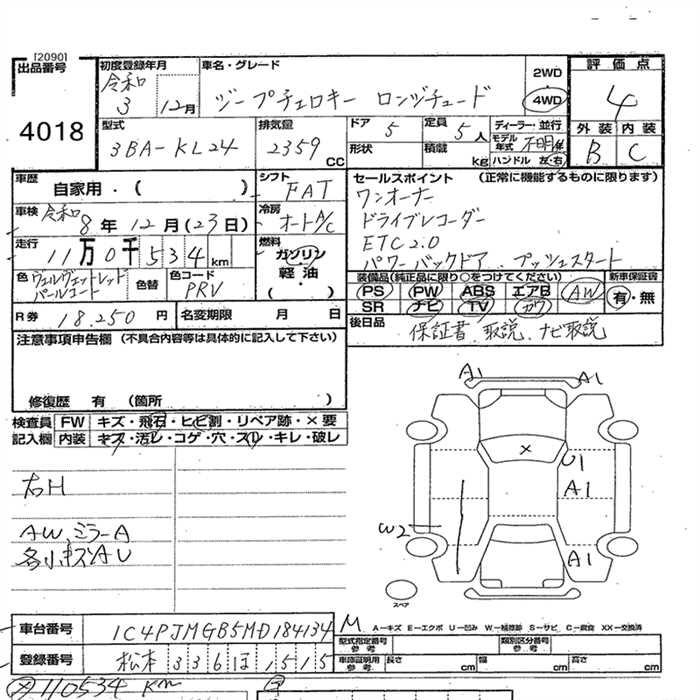 [2090]
出品番号
4018
初度登録年月
令和
3 12月
車名・グレード
ジープチェロキー ロンジチュード
2WD
4WD
評価点
4
外装 内装
B C
型式
3BA-KL24
排気量
2359 CC
ドア 5
形状
定員 5人
積載 kg
ディーラー・並行
モデル年式 不明年
ハンドル 左・右
車歴 自家用・( )
シフト FAT
車検 令和 8年12月(23日)
冷房 オートA/C
走行 11万0千534km
燃料 ガソリン・軽油・( )
色 ヴェルヴェットレッドパールコート
色替
色コード PRV
R券 18,250円
名変期限 月 日
セールスポイント (正常に機能するものに限ります)
ワンオーナー
ドライブレコーダー
ETC2.0
パワーバックドア、プッシュスタート
装備品(純正品に限り○をつけてください)
PS PW ABS エアB AW
SR ナビ TV カワ
新車保証書
有・無
後日品 保証書、取説、ナビ取説
注意事項申告欄(不具合内容等は具体的に記入して下さい)
修復歴 有 (箇所 )
検査員 FW キズ・飛石・ヒビ割・リペア跡・×要
記入欄 内装 キズ・汚レ・コゲ・穴・スレ・キレ・破レ
右H
AW、ミラーA
各小キズAU
A1 A1
×
U1
A1
W2
A1
スペア
車台番号 1C4PJMGB5MD184134
登録番号 松本 336 ほ 1515
M
A-キズ E-エクボ U-凹み W-補修跡 S-サビ C-腐食 XX-交換済
型式指定番号
参考
類別区分番号
参考
車庫証明用
参考
長さ cm 幅 cm 高さ cm
110534 km